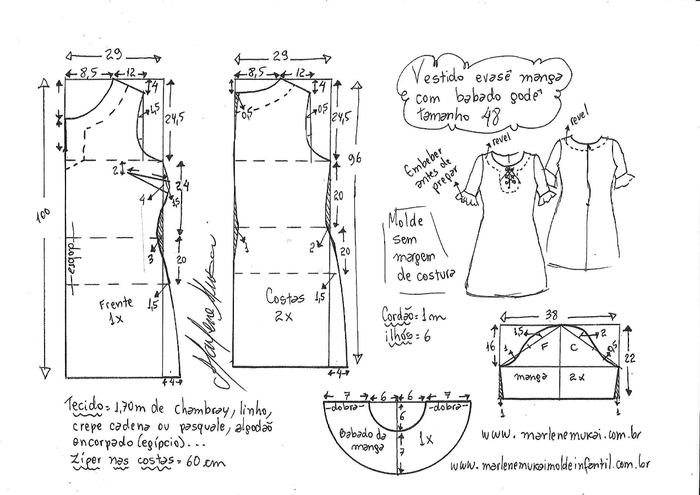 29
8,5 12
4
1,5
24,5
100
2
24
4
1,5
dobra
3
20
1,5
Frente
1x
4
29
8,5 12
4
0,5
0,5
24,5
96
20
3
2
20
1,5
Costas
2x
4
Marlene Mukai
Vestido evasê manga
com babado godê
tamanho 48
revel
revel
Embeber
antes de
pregar
Molde
sem
margem
de costura
Cordão = 1m
ilhós = 6
38
1,5
2
16
1
F
C
0,5
22
manga
2x
1
1
7 6 6 7
-dobra-
-dobra-
6
Babado da
manga
1x
7
Tecido = 1,70m de chambray, linho,
crepe cadena ou pasquale, algodão
encorpado (egípcio)...
Zíper nas costas = 60 cm
www.marlenemukai.com.br
www.marlenemukaimoldeinfantil.com.br